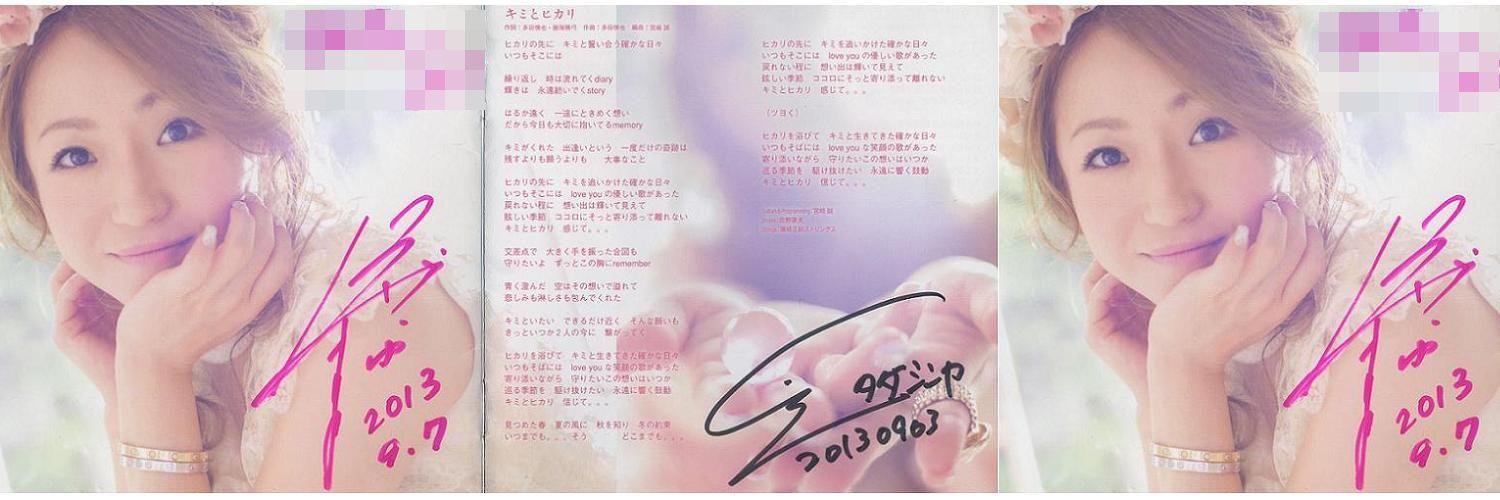 2013
9.7
キミとヒカリ
ヒカリの先に キミと誓い合う確かな日々
いつもそこには
繰り返し 時は流れてくdiary
輝きは 永遠紡いでくstory
はるか遠く 一途にときめく想い
だから今日も大切に抱いてるmemory
キミがくれた 出逢いという 一度だけの奇跡は
残すよりも願うよりも 大事なこと
ヒカリの先に キミを追いかけた確かな日々
いつもそこには love you の優しい歌があった
戻れない程に 想い出は輝いて見えて
眩しい季節 ココロにそっと寄り添って離れない
キミとヒカリ 感じて。。。
交差点で 大きく手を振った合図も
守りたいよ ずっとこの胸にremember
青く澄んだ 空はその想いで溢れて
悲しみも淋しさも包んでくれた
キミといたい できるだけ近く そんな願いも
きっといつか2人の今に 繋がってく
ヒカリを浴びて キミと生きてきた確かな日々
いつもそばには love you な笑顔の歌があった
寄り添いながら 守りたいこの想いはいつか
巡る季節を 駆け抜けたい 永遠に響く鼓動
キミとヒカリ 信じて。。。
見つめた春 夏の風に 秋を知り 冬の約束
いつまでも。。。そう どこまでも。。。
ヒカリの先に キミを追いかけた確かな日々
いつもそこには love you の優しい歌があった
戻れない程に 想い出は輝いて見えて
眩しい季節 ココロにそっと寄り添って離れない
キミとヒカリ 感じて。。。
(ツヨく)
ヒカリを浴びて キミと生きてきた確かな日々
いつもそばには love you な笑顔の歌があった
寄り添いながら 守りたいこの想いはいつか
巡る季節を 駆け抜けたい 永遠に響く鼓動
キミとヒカリ 信じて。。。
タダシンヤ
20130903
2013
9.7